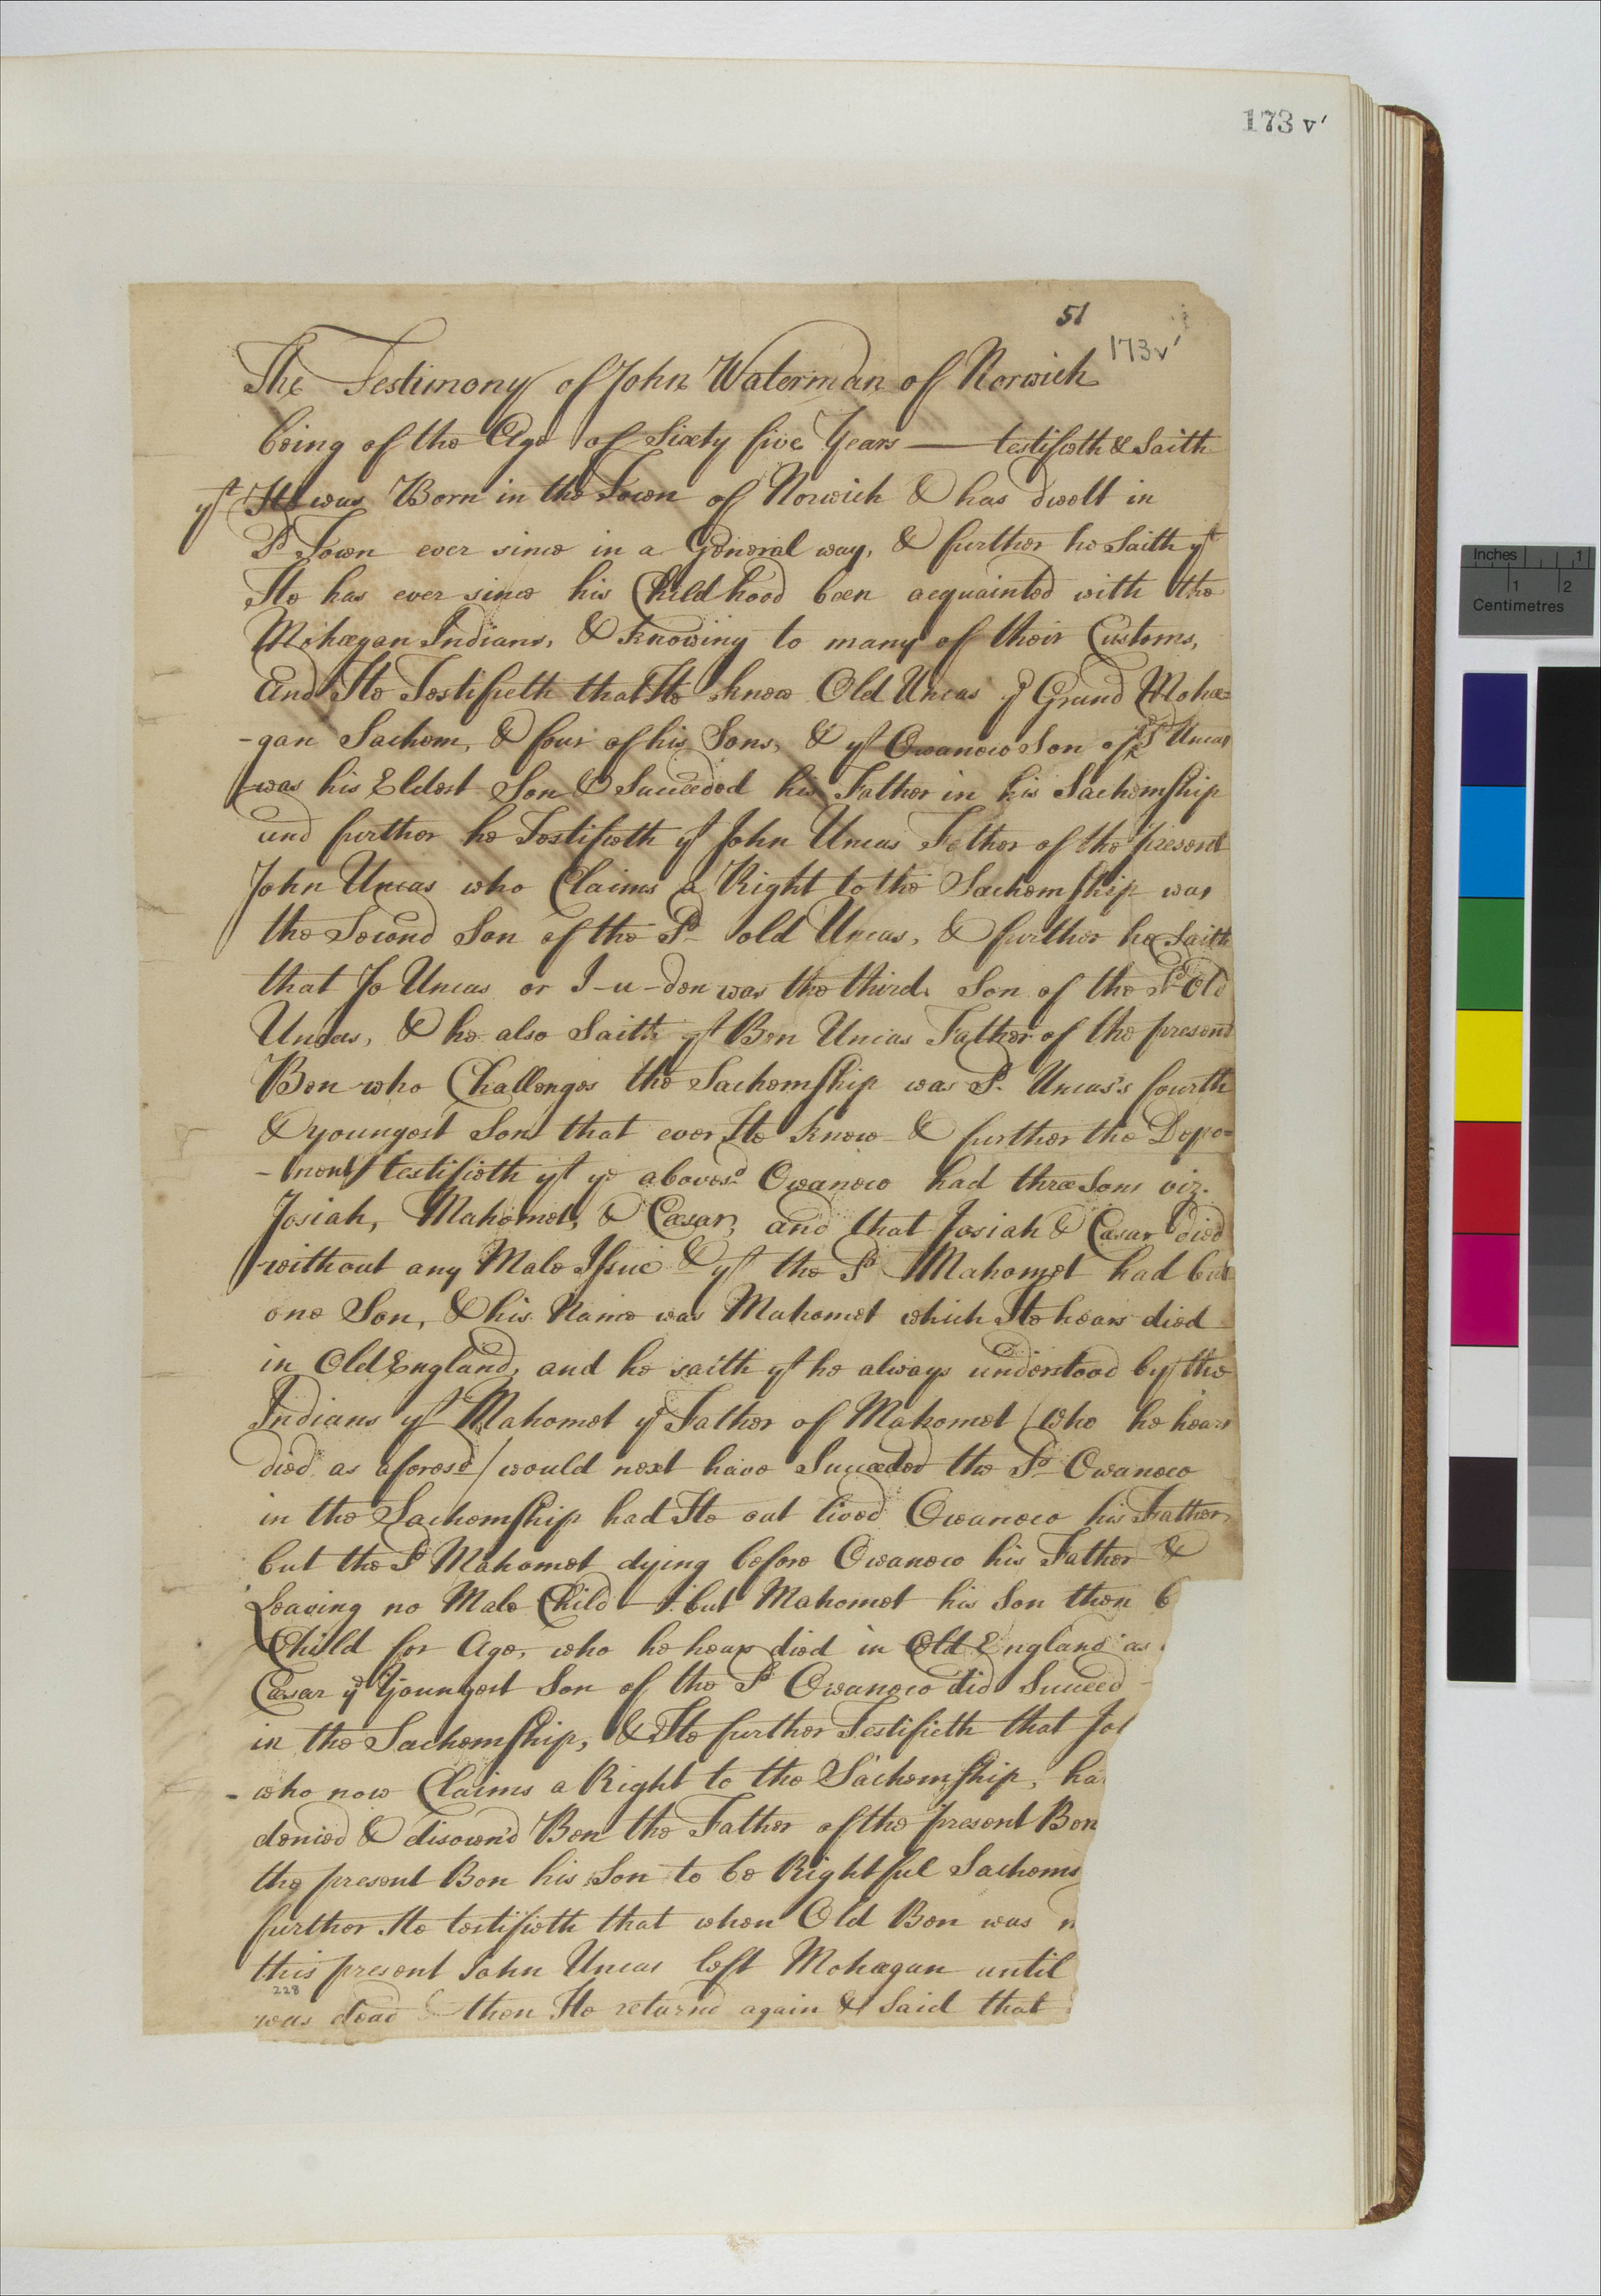 173 v'
51
173v'
The Testimony of John Waterman of Norwich
being of the Age of Sixty five Years — testifieth & Saith
yt He was Born in the Town of Norwich & has dwelt in
Sd Town ever since in a General way, & further he Saith yt
He has ever since his Childhood been acquainted with the
Mohegan Indians, & knowing to many of their Customs,
And He Testifieth that He knew Old Uncas ye Grand Mohe=
-gan Sachem, & four of his Sons, & yt Owaneco Son of sd Uncas
was his Eldest Son & Succeeded his Father in his Sachemship
and further he Testifieth yt John Uncas Father of the present
John Uncas who Claims a Right to the Sachemship was
the Second Son of the Sd old Uncas, & further he Saith
that Jo Uncas or J-u-don was the third Son of the Sd Old
Uncas, & he also Saith yt Ben Uncas Father of the present
Ben who Challenges the Sachemship was Sd Uncas's fourth
& youngest Son that ever He knew & further the Depo=
-nent testifieth yt ye abovesd Owaneco had three Sons viz.
Josiah, Mahomet, & Cæsar, and that Josiah & Cæsar died
without any Male Issue & yt the Sd Mahomet had but
one Son, & his Name was Mahomet which He hears died
in Old England, and he saith yt he always understood by the
Indians yt Mahomet ye Father of Mahomet / who he hears
died as aforesd / would next have Succeeded the Sd Owaneco
in the Sachemship had He out lived Owaneco his Father,
but the Sd Mahomet dying before Owaneco his Father &
Leaving no Male Child but Mahomet his Son then
Child for Age, who he hears died in Old England as
Cæsar ye Youngest Son of the Sd Owaneco did Succeed
in the Sachemship, & He further Testifieth that
who now Claims a Right to the Sachemship, ha
denied & disown'd Ben the Father of the present Ben
the present Ben his Son to be Rightful Sachems
further He testifieth that when Old Ben was
this present John Uncas left Mohegan until
228
was dead & then He returnd again & Said that
Inches 1
1 2
Centimetres